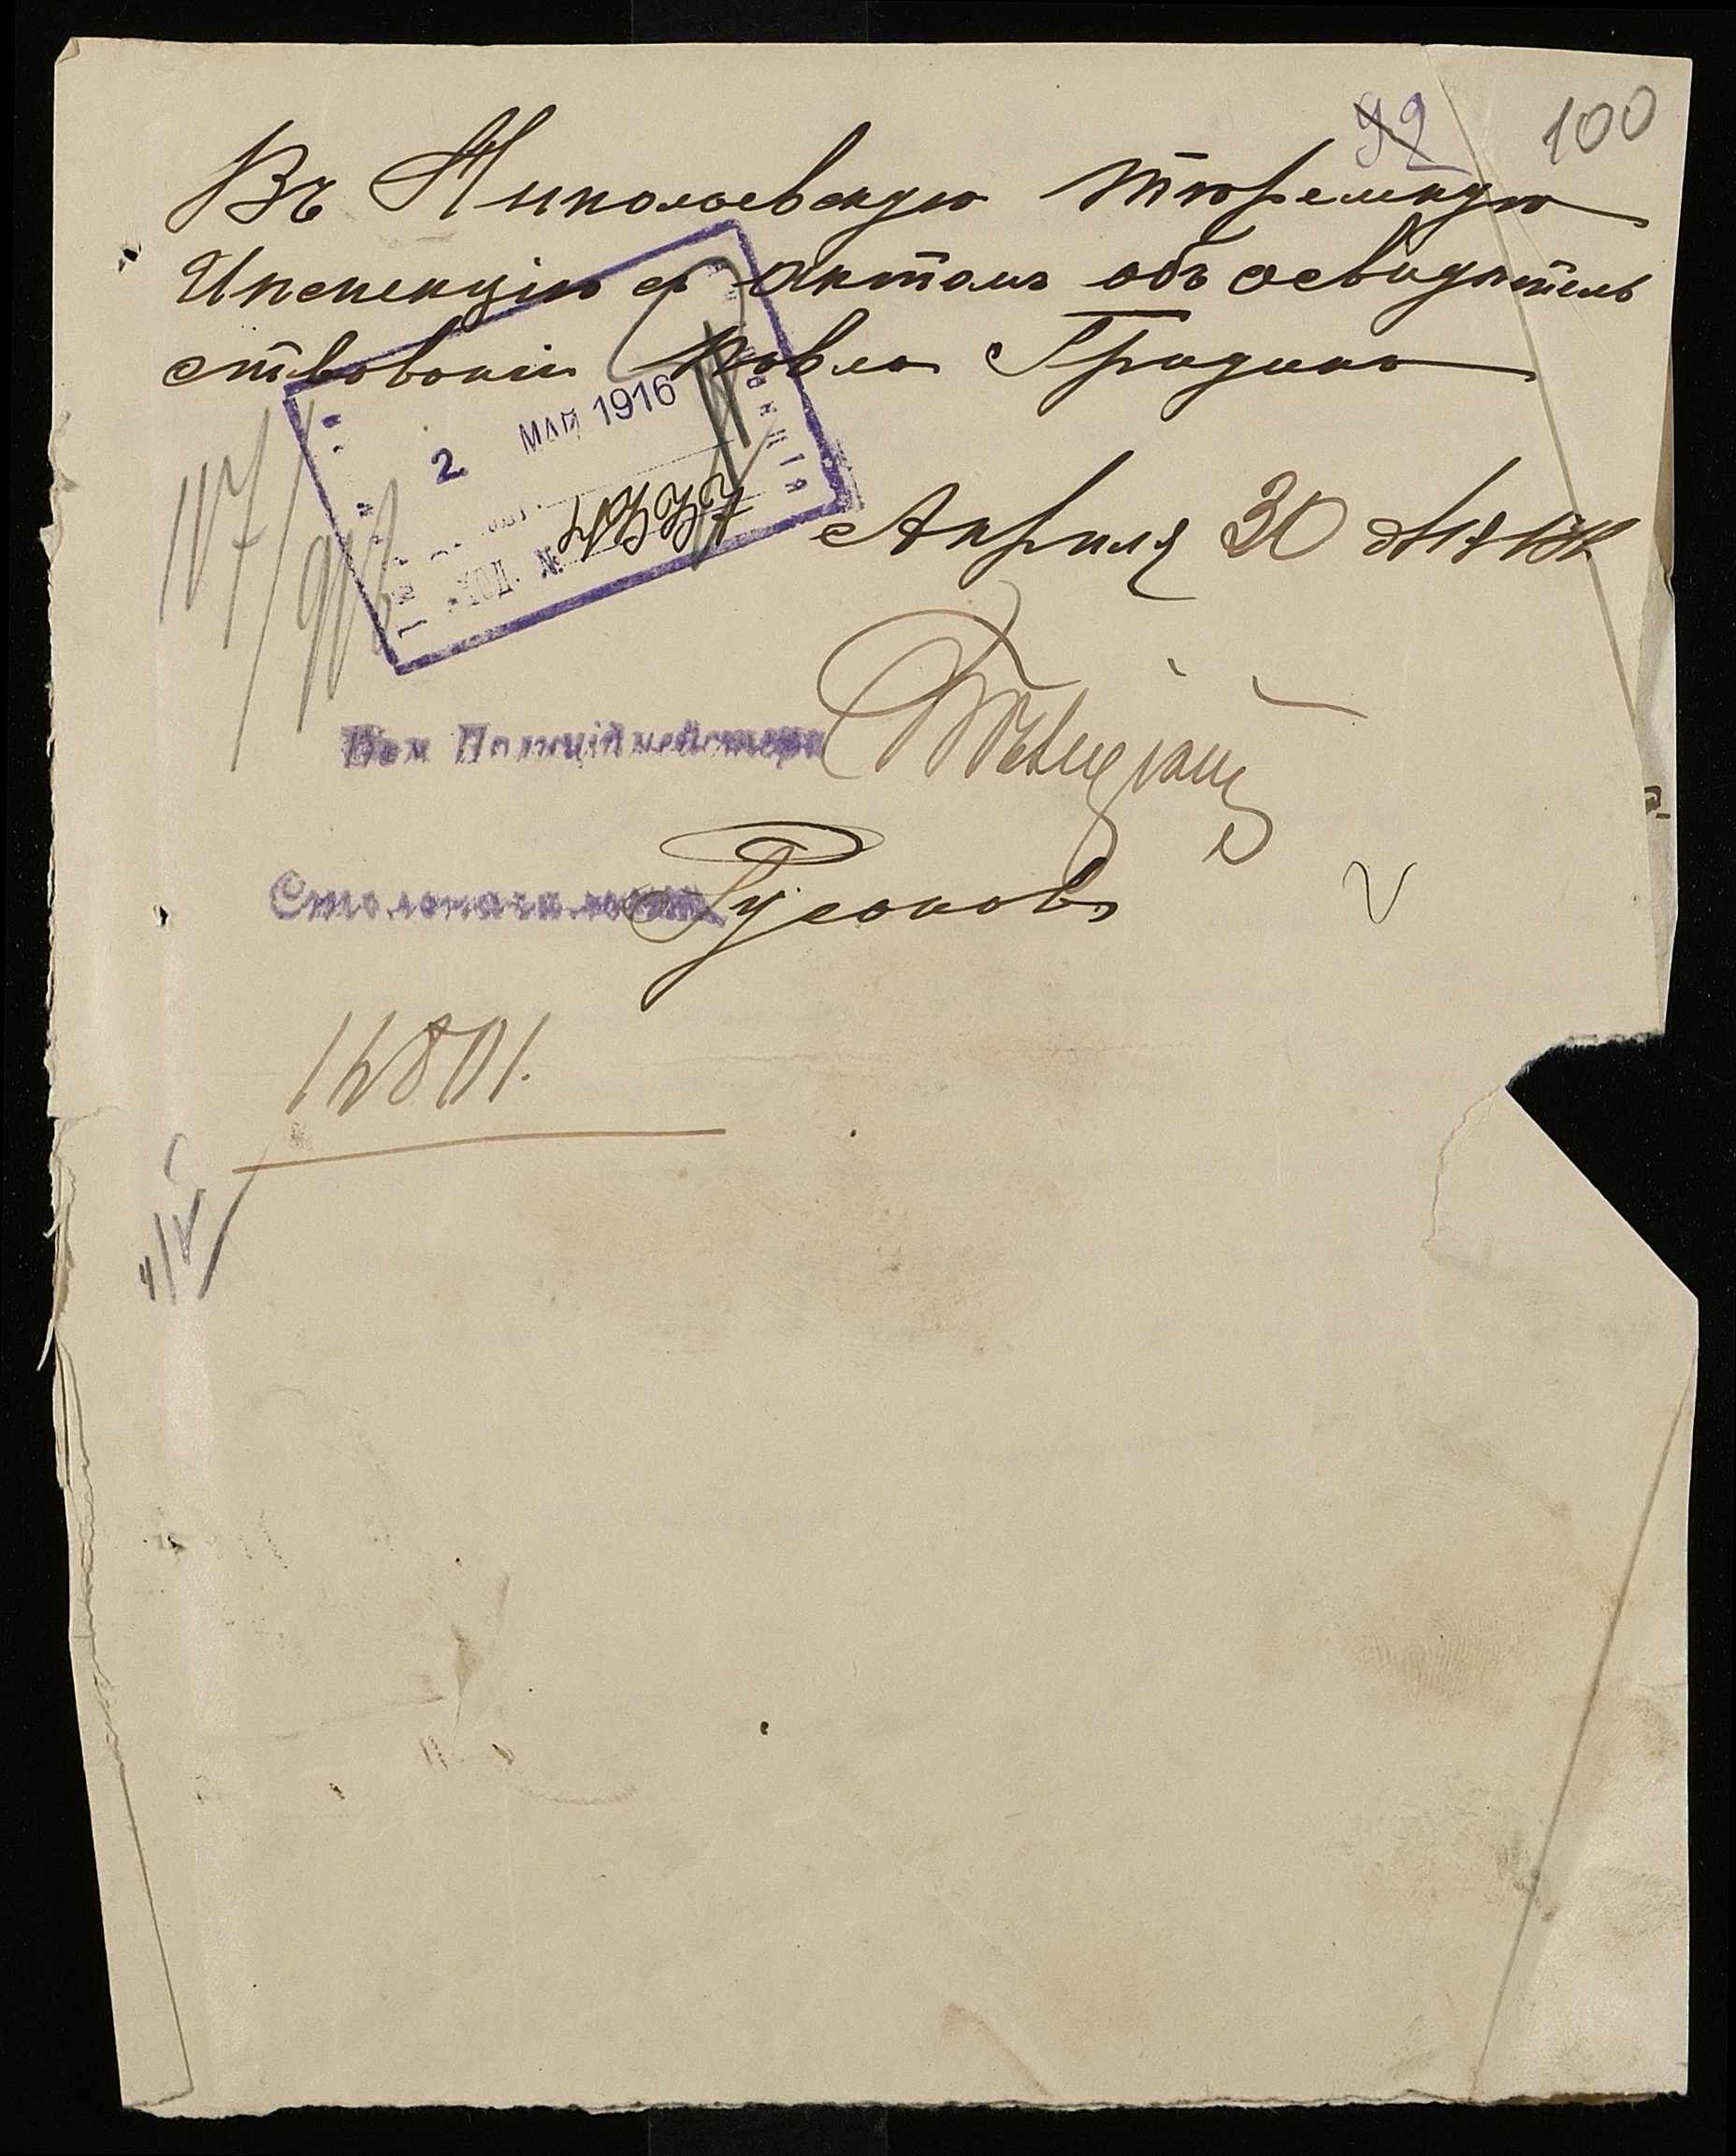 92 100
Въ Николаевскую Тюремную
Инспекцію съ актомъ объ освидѣтель
ствованіи Павла Градина
2 МАЙ 1916
ХОД. №
107/916
Апрѣля 30 дня 191
Пом Полиціймейстера
Столоначальникъ Русановъ
14801.
4/V